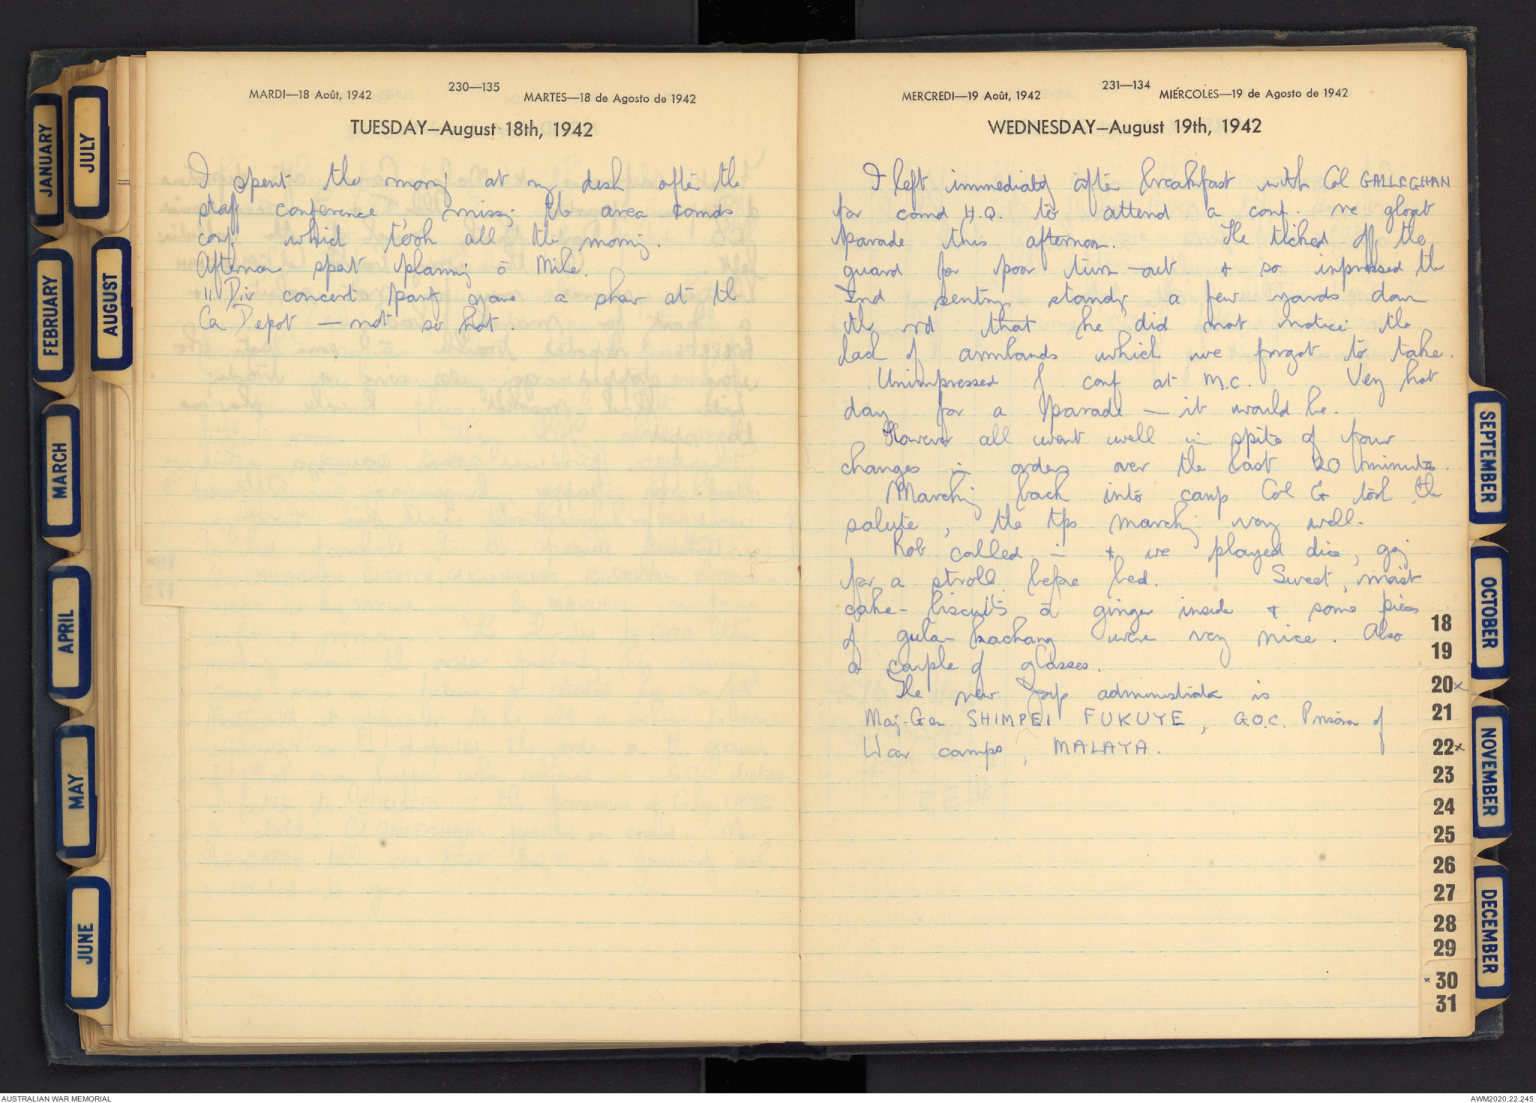 JANUARY
FEBRUARY
MARCH
APRIL
MAY
JUNE
JULY
AUGUST
MARDI—18 Août, 1942
230—135
MARTES—18 de Agosto de 1942
TUESDAY—August 18th, 1942
I spent the morng at my desk after the
staff conference missg the area comds
conf. which took all the morning.
Afternoon spent planning c̄ Mike.
11 Div concert party gave a show at the
Co Depot — not so hot.
MERCREDI—19 Août, 1942
231—134
MIÉRCOLES—19 de Agosto de 1942
WEDNESDAY—August 19th, 1942
I left immediately after breakfast with Col GALLEGHAN
for comd H.Q. to attend a conf. re
parade this afternoon. He ticked off the
guard for poor turn-out & so impressed the
2nd sentry standg a few yards down
the rd that he did not notice the
lack of armbands which we forgot to take.
Unimpressed of conf at M.C. Very hot
day for a parade — it would be.
However all went well in spite of four
changes in orders over the last 20 minutes.
Marching back into camp Col G took the
salute, the tps marchg very well.
Rob called in & we played dice, gog
for a stroll before bed. Sweet, moist
cake-biscuits c̄ ginger inside & some pieces
of gula-kachang were very nice. Also
a couple of glasses.
The new Jap administrator is
Maj-Gen SHIMPEI FUKUYE, G.O.C. Prisoner of
War camps, MALAYA.
18
19
20x
21
22x
23
24
25
26
27
28
29
30
31
SEPTEMBER
OCTOBER
NOVEMBER
DECEMBER
AUSTRALIAN WAR MEMORIAL
AWM2020.22.245